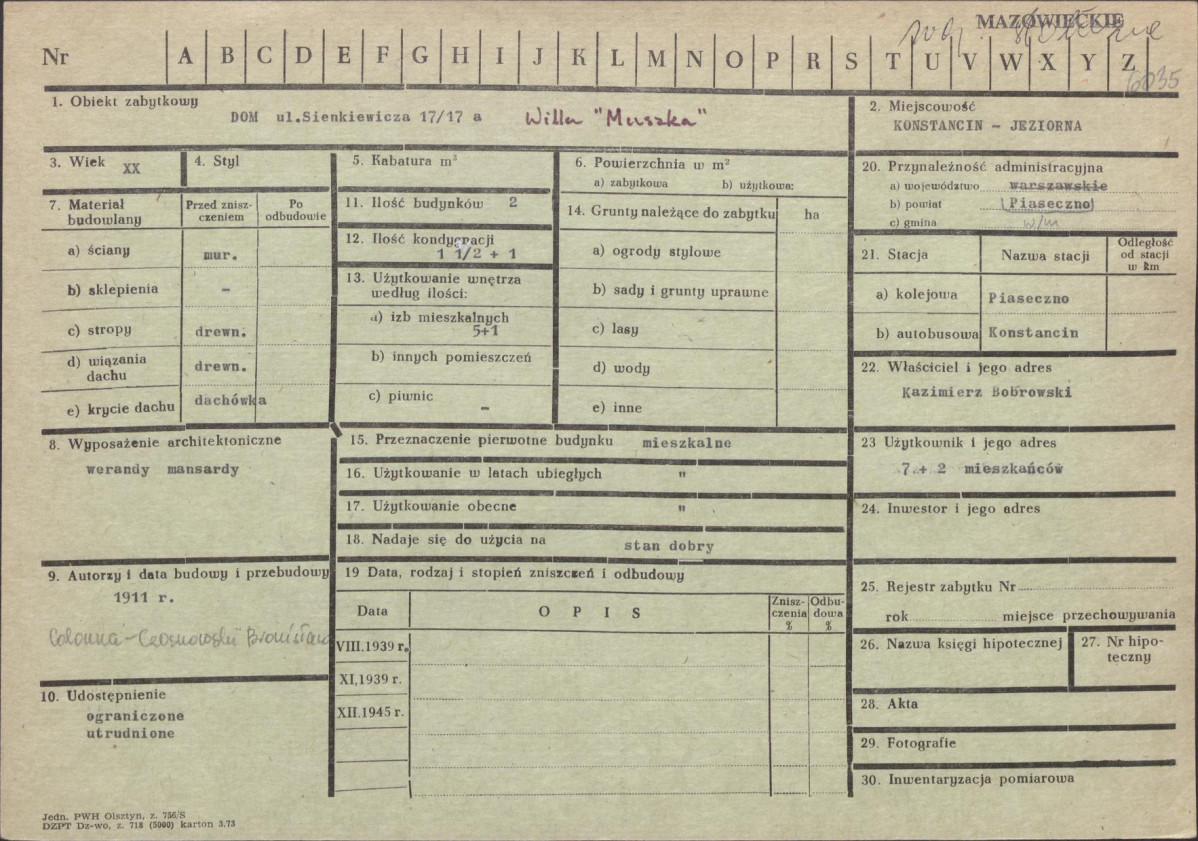 MAZOWIECKIE
6035
Nr A B C D E F G H I J K L M N O P R S T U V W X Y Z
1. Obiekt zabytkowy
DOM ul.Sienkiewicza 17/17 a Willa "Muszka"
2. Miejscowość
KONSTANCIN - JEZIORNA
3. Wiek XX
4. Styl
5. Kabatura m³
6. Powierzchnia w m²
a) zabytkowa b) użytkowa:
20. Przynależność administracyjna
a) województwo warszawskie
b) powiat (Piaseczno)
c) gmina w/m
7. Materiał budowlany
Przed zniszczeniem
Po odbudowie
a) ściany mur.
b) sklepienia -
c) stropy drewn.
d) wiązania dachu drewn.
e) krycie dachu dachówka
11. Ilość budynków 2
12. Ilość kondygnacji
1 1/2 + 1
13. Użytkowanie wnętrza
według ilości:
a) izb mieszkalnych
5+1
b) innych pomieszczeń
c) piwnic
-
14. Grunty należące do zabytku ha
a) ogrody stylowe
b) sady i grunty uprawne
c) lasy
d) wody
e) inne
21. Stacja Nazwa stacji Odległość od stacji w km
a) kolejowa Piaseczno
b) autobusowa Konstancin
22. Właściciel i jego adres
Kazimierz Bobrowski
8. Wyposażenie architektoniczne
werandy mansardy
15. Przeznaczenie pierwotne budynku mieszkalne
16. Użytkowanie w latach ubiegłych "
17. Użytkowanie obecne "
18. Nadaje się do użycia na stan dobry
23 Użytkownik i jego adres
7 + 2 mieszkańców
24. Inwestor i jego adres
9. Autorzy i data budowy i przebudowy
1911 r.
Colonna-Czosnowski Bronisław
10. Udostępnienie
ograniczone
utrudnione
19 Data, rodzaj i stopień zniszczeń i odbudowy
Data OPIS Zniszczenia % Odbudowa %
VIII.1939 r.
XI,1939 r.
XII.1945 r.
25. Rejestr zabytku Nr
rok miejsce przechowywania
26. Nazwa księgi hipotecznej
27. Nr hipoteczny
28. Akta
29. Fotografie
30. Inwentaryzacja pomiarowa
Jedn. PWH Olsztyn, z. 756/S
DZPT Dz-wo, z. 718 (5000) karton 3.73